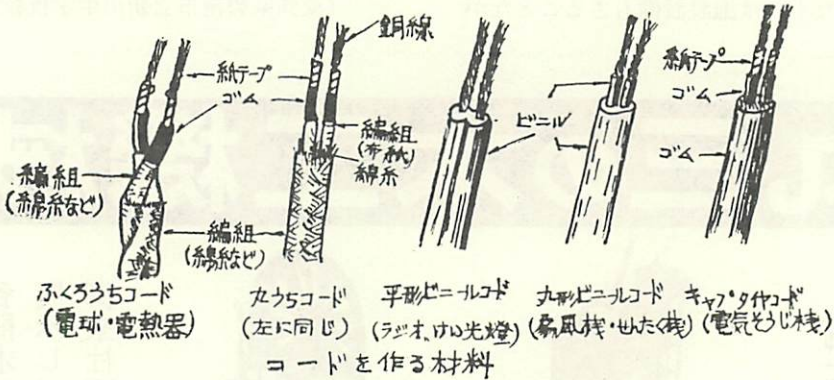 銅線
紙テープ
ゴム
編組
(布紙)
綿糸
編組
(綿糸など)
編組
(綿糸など)
ビニル
紙テープ
ゴム
ゴム
ふくろうちコード
(電球・電熱器)
丸うちコード
(左に同じ)
平形ビニールコード
(ラジオ、けい光燈)
丸形ビニールコード
(扇風機・せんたく機)
キャブタイヤコード
(電気そうじ機)
コードを作る材料